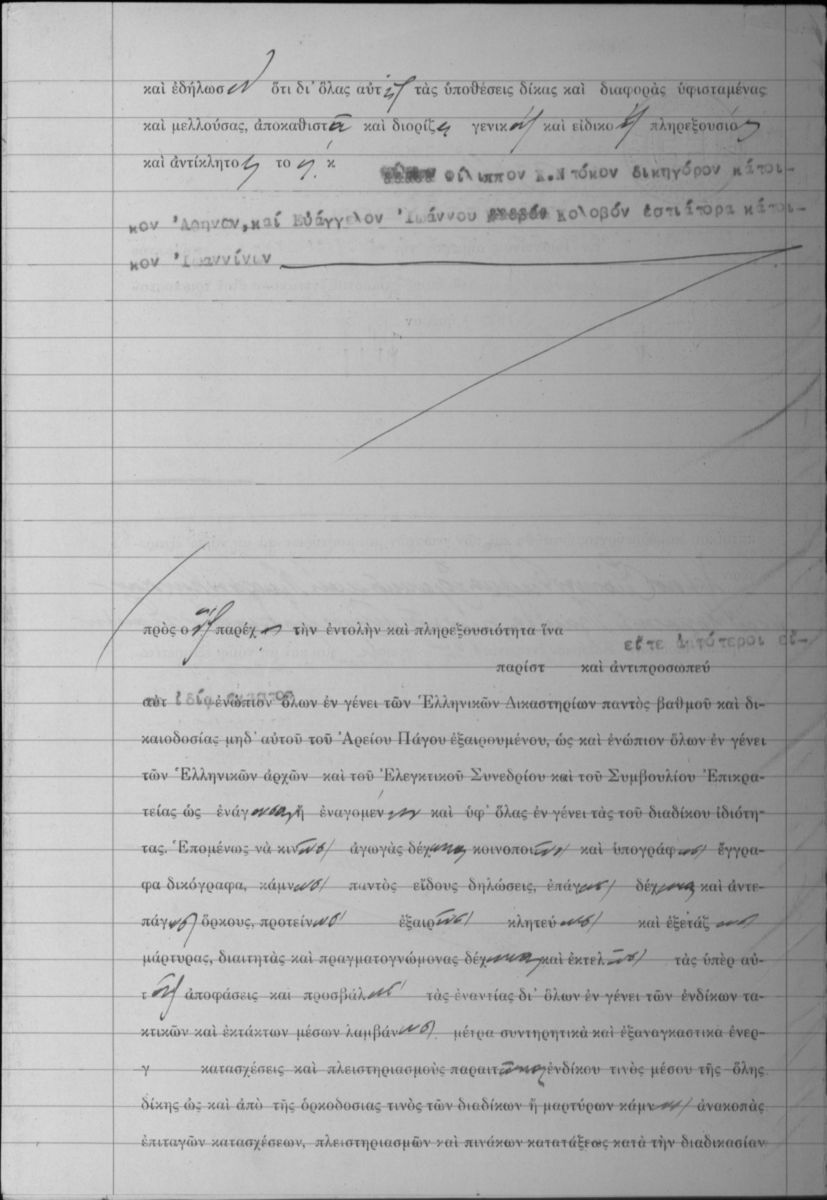 καὶ ἐδήλωσεν ὅτι δι' ὅλας αὐτῆς τὰς ὑποθέσεις δίκας καὶ διαφορὰς ὑφισταμένας
καὶ μελλούσας, ἀποκαθιστᾶ καὶ διορίζει γενικοὺς καὶ εἰδικοὺς πληρεξουσίους
καὶ ἀντίκλητο το κ
Φίλιππον Κ.Ντόκον δικηγόρον κάτοι-
κον Ἀθηνῶν,καί Εὐάγγελον Ἰωάννου Κολοβόν ἑστιάτορα κάτοι-
κον Ἰωαννίνων
πρὸς οὓς παρέχει τὴν ἐντολὴν καὶ πληρεξουσιότητα ἵνα
εἴτε ἀμφότεροι εἴ-
παρίστ καὶ ἀντιπροσωπεύ
αὐτ ἰδίᾳ ἕκαστος ἐνώπιον ὅλων ἐν γένει τῶν Ἑλληνικῶν Δικαστηρίων παντὸς βαθμοῦ καὶ δι-
καιοδοσίας μηδ' αὐτοῦ τοῦ Ἀρείου Πάγου ἐξαιρουμένου, ὡς καὶ ἐνώπιον ὅλων ἐν γένει
τῶν Ἑλληνικῶν ἀρχῶν καὶ τοῦ Ἐλεγκτικοῦ Συνεδρίου καὶ τοῦ Συμβουλίου Ἐπικρα-
τείας ὡς ἐνάγουσαν ἢ ἐναγομένην καὶ ὑφ' ὅλας ἐν γένει τὰς τοῦ διαδίκου ἰδιότη-
τας. Ἑπομένως νὰ κινῶσι ἀγωγὰς δέχωνται κοινοποιῶσι καὶ ὑπογράφωσι ἔγγρα-
φα δικόγραφα, κάμνωσι παντὸς εἴδους δηλώσεις, ἐπάγωσι δέχωνται καὶ ἀντε-
πάγωσι ὅρκους, προτείνωσι ἐξαιρῶσι κλητεύωσι καὶ ἐξετάζωσι
μάρτυρας, διαιτητὰς καὶ πραγματογνώμονας δέχωνται καὶ ἐκτελῶσι τὰς ὑπὲρ αὐ-
τῆς ἀποφάσεις καὶ προσβάλωσι τὰς ἐναντίας δι' ὅλων ἐν γένει τῶν ἐνδίκων τα-
κτικῶν καὶ ἐκτάκτων μέσων λαμβάνωσι μέτρα συντηρητικὰ καὶ ἐξαναγκαστικὰ ἐνερ-
γ κατασχέσεις καὶ πλειστηριασμοὺς παραιτῶνται ἐνδίκου τινὸς μέσου τῆς ὅλης
δίκης ὡς καὶ ἀπὸ τῆς ὁρκοδοσίας τινὸς τῶν διαδίκων ἢ μαρτύρων κάμνωσι ἀνακοπὰς
ἐπιταγῶν κατασχέσεων, πλειστηριασμῶν καὶ πινάκων κατατάξεως κατὰ τὴν διαδικασίαν